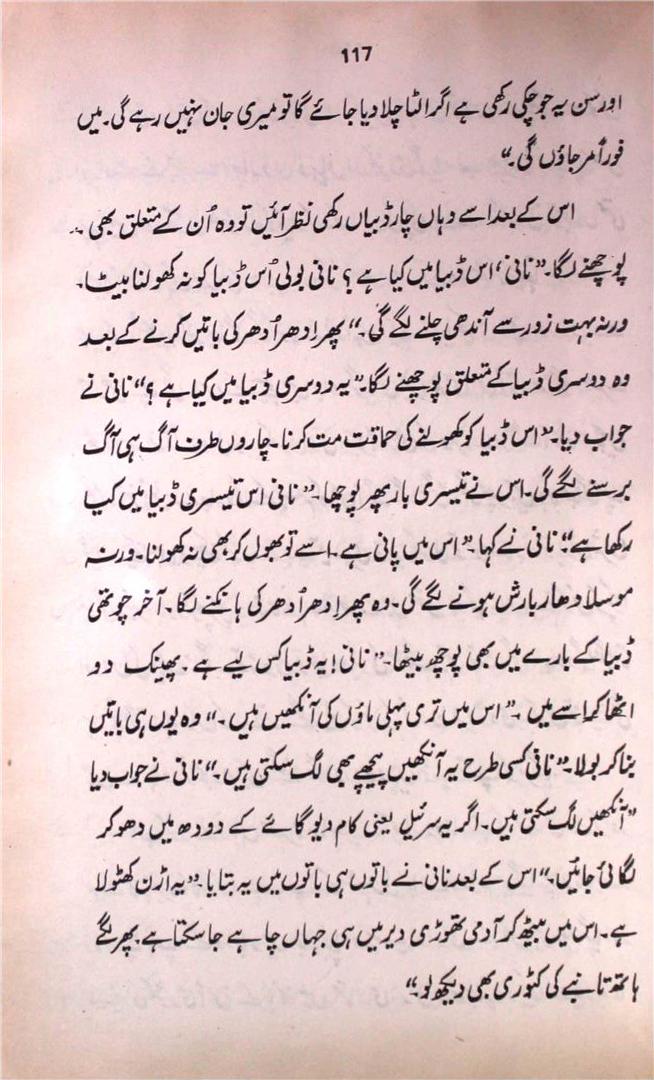 117
اور سن یہ جو چکی رکھی ہے اگر الٹا چلا دیا جائے گا تو میری جان نہیں رہے گی۔ میں
فوراً مر جاؤں گی۔“
اس کے بعد اسے وہاں چار ڈبیاں رکھی نظر آئیں تو وہ اُن کے متعلق بھی
پوچھنے لگا۔ ”نانی، اس ڈبیا میں کیا ہے؟ نانی بولی اُس ڈبیا کو نہ کھولنا بیٹا۔
ورنہ بہت زور سے آندھی چلنے لگے گی۔“ پھر اِدھر اُدھر کی باتیں کرنے کے بعد
وہ دوسری ڈبیا کے متعلق پوچھنے لگا۔ ”یہ دوسری ڈبیا میں کیا ہے؟“ نانی نے
جواب دیا۔ ”اس ڈبیا کو کھولنے کی حماقت مت کرنا۔ چاروں طرف آگ ہی آگ
برسنے لگے گی۔ اس نے تیسری بار پھر پوچھا۔ ”نانی اس تیسری ڈبیا میں کیا
رکھا ہے“؟ نانی نے کہا۔ ”اس میں پانی ہے۔ اسے تو بھول کر بھی نہ کھولنا۔ ورنہ
موسلا دھار بارش ہونے لگے گی۔ وہ پھر اِدھر اُدھر کی ہانکنے لگا۔ آخر چوتھی
ڈبیا کے بارے میں بھی پوچھ بیٹھا۔ ”نانی! یہ ڈبیا کس لیے ہے۔ پھینک دو
اٹھا کر اسے میں ۔” اس میں تری پہلی ماؤں کی آنکھیں ہیں۔“ وہ یوں ہی باتیں
بنا کر بولا۔ ”نانی کسی طرح یہ آنکھیں پیچھے بھی لگ سکتی ہیں۔“ نانی نے جواب دیا
”آنکھیں لگ سکتی ہیں۔ اگر یہ سرئیل یعنی کام دیو گائے کے دودھ میں دھو کر
لگائی جائیں۔“ اس کے بعد نانی نے باتوں ہی باتوں میں یہ بتایا۔ ”یہ اڑن کھٹولا
ہے۔ اس میں بیٹھ کر آدمی تھوڑی دیر میں ہی جہاں چاہے جا سکتا ہے۔ پھر لگے
ہاتھ تانبے کی کٹوری بھی دیکھ لو۔“